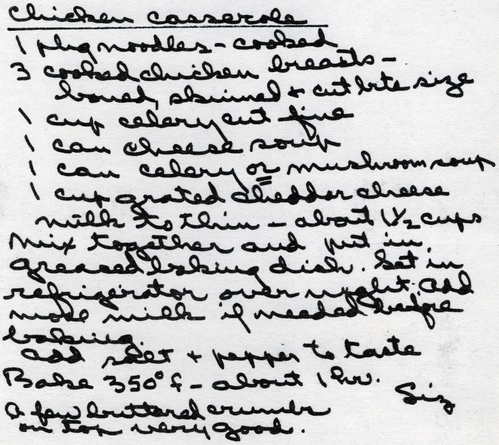 Chicken casserole
1 pkg noodles - cooked
3 cooked chicken breasts -
boned, skinned & cut bite size
1 cup celery cut fine
1 can cheese soup
1 can celery or mushroom soup
1 cup grated cheddar cheese
milk to thin - about 1 1/2 cups
mix together and put in
greased baking dish. Set in
refrigerator over night. Add
more milk if needed before
baking.
add salt + pepper to taste
Bake 350° F - about 1 hr.
Siz
a few buttered crumbs
on top very good.